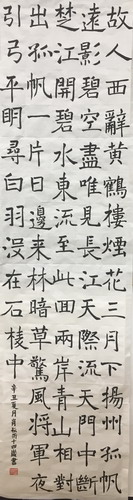 故人西辭黃鶴樓煙花三月下揚州孤帆
遠影碧空盡唯見長江天際流天門中斷
楚江開碧水東流至此回兩岸青山相對
出孤帆一片日邊來林暗草驚風將軍夜
引弓平明尋白羽沒在石棱中
辛丑